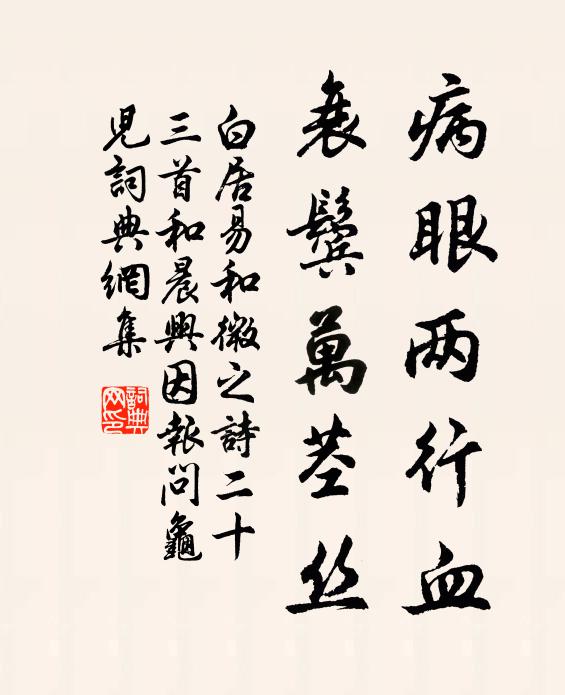 病眼两行血
衰鬓萬茎丝
白居易和微之詩二十
三首和晨興因報問龜
児詞典網集
詞典网印